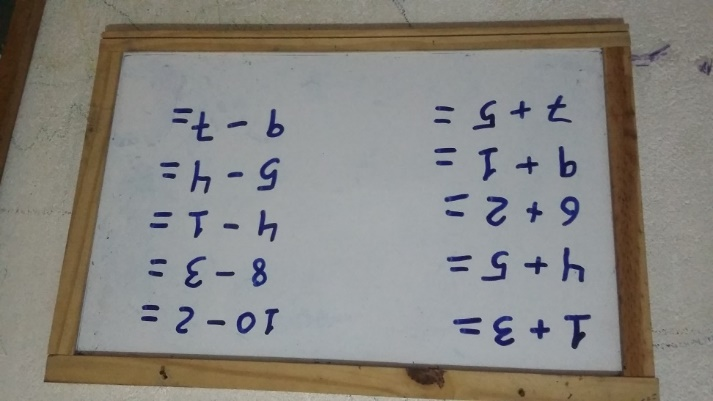 1 + 3 =
4 + 5 =
6 + 2 =
9 + 1 =
7 + 5 =
10 - 2 =
8 - 3 =
4 - 1 =
5 - 4 =
9 - 7 =